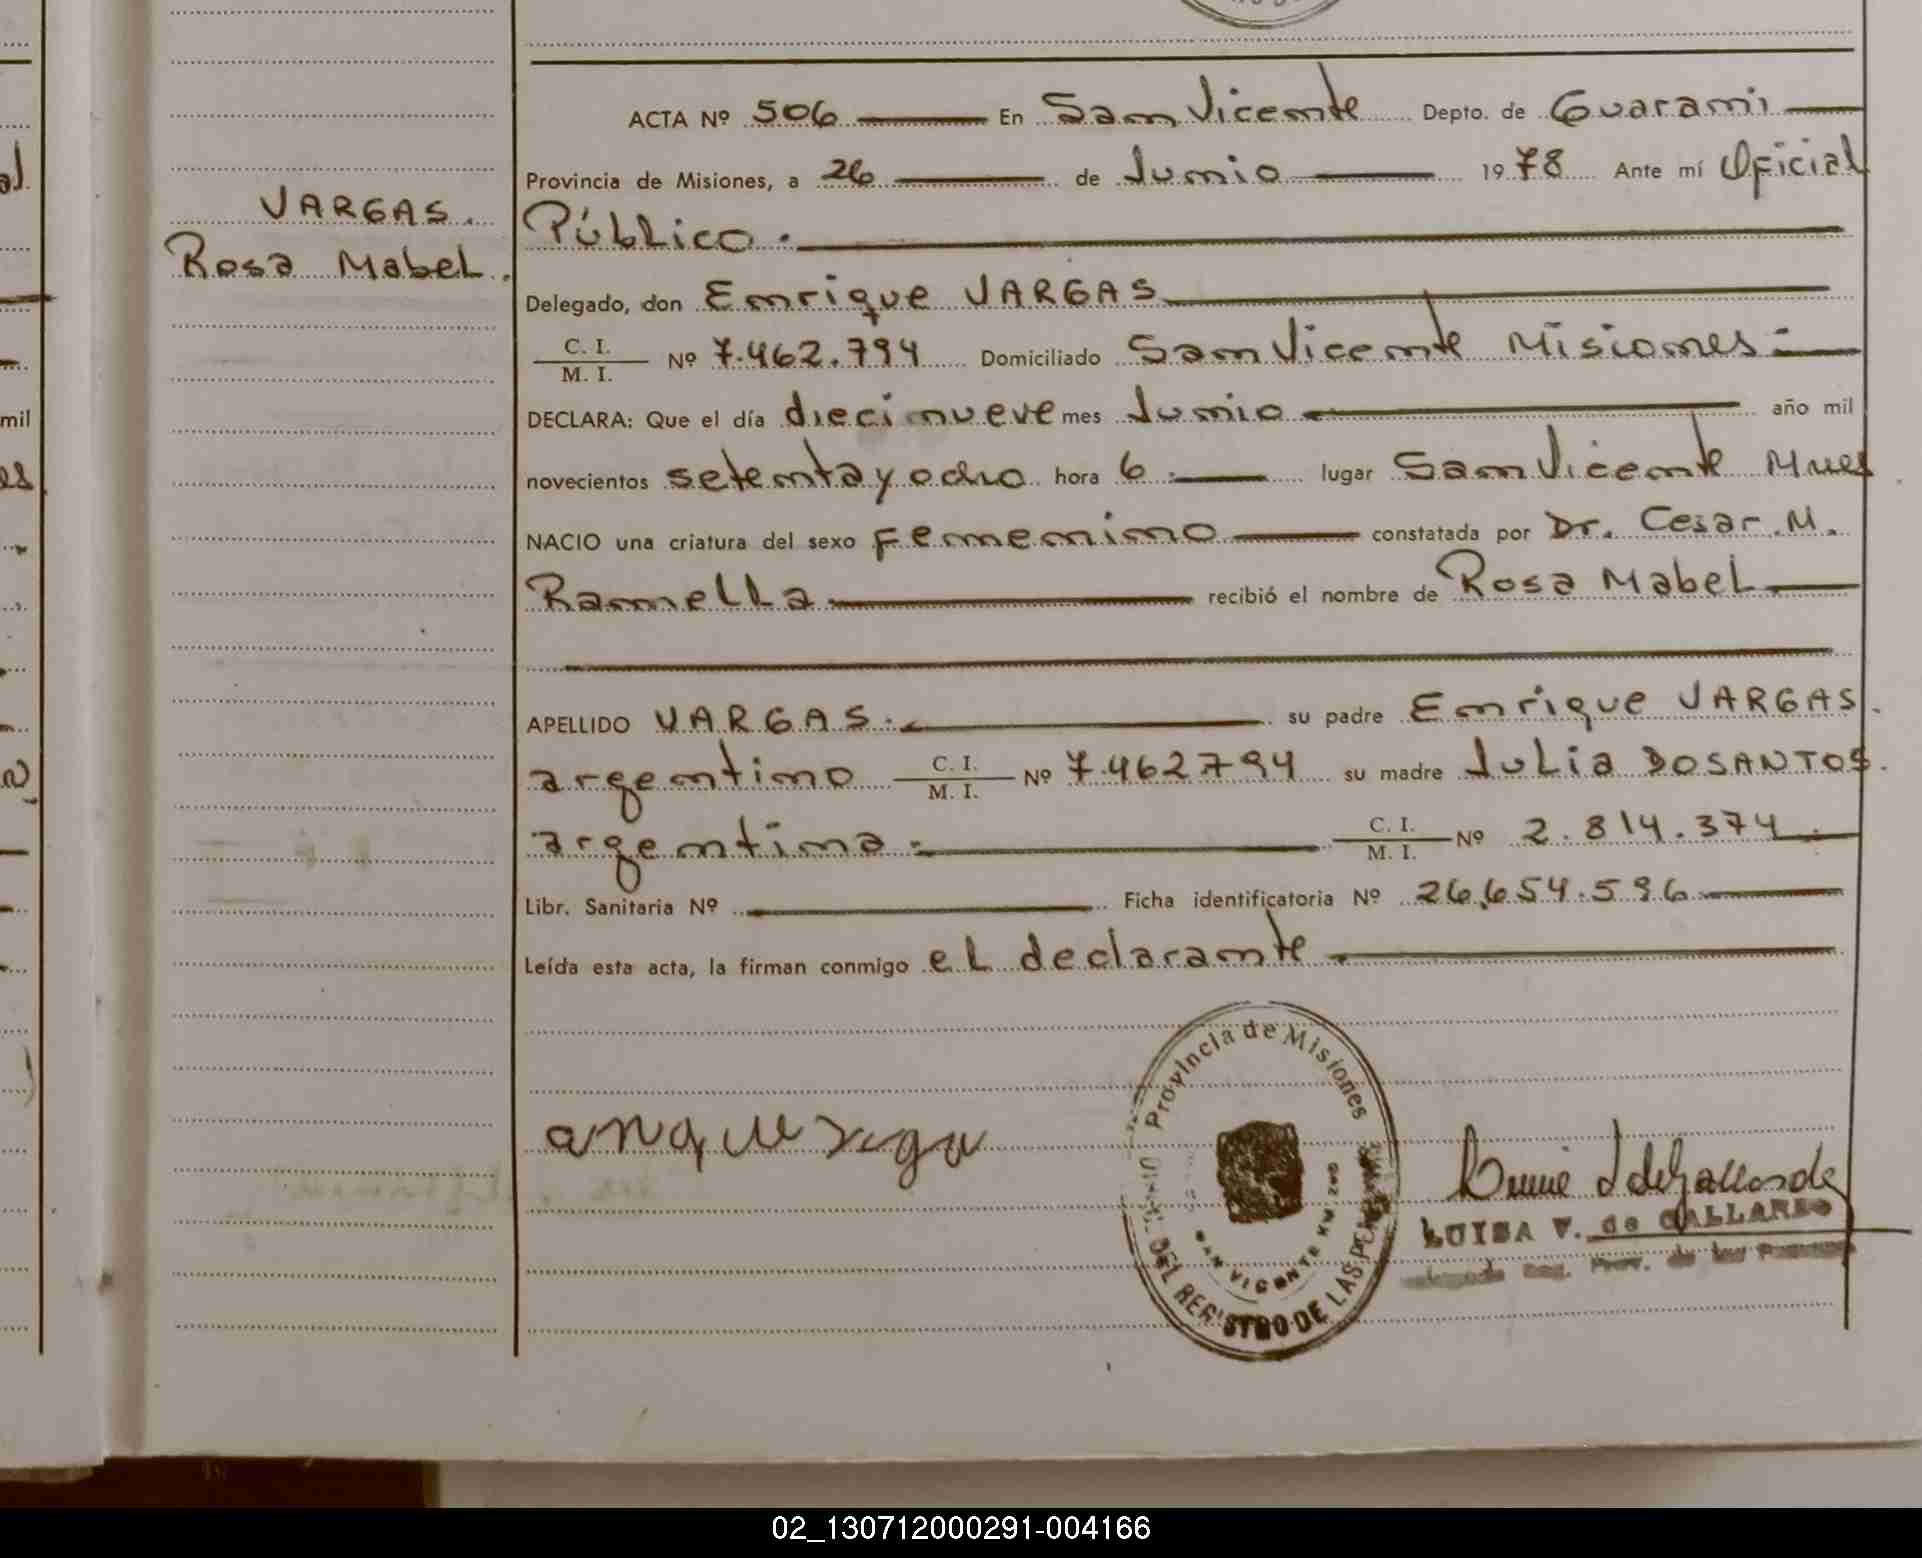 ACTA Nº 506 En San Vicente Depto. de Guarani
Provincia de Misiones, a 26 de Junio 1978 Ante mí Oficial
VARGAS.
Público.
Rosa Mabel.
Delegado, don Enrique VARGAS
C. I.
M. I. Nº 7.462.794 Domiciliado San Vicente Misiones
mil
DECLARA: Que el día diecinueve mes Junio año mil
novecientos setenta y ocho hora 6 lugar San Vicente Mnes
NACIO una criatura del sexo Femenino constatada por Dr. Cesar M.
Ramella recibió el nombre de Rosa Mabel
APELLIDO VARGAS su padre Enrique VARGAS.
argentino C. I. M. I. Nº 7.462794 su madre Julia DOSANTOS.
argentina C. I. M. I. Nº 2.814.374
Libr. Sanitaria Nº Ficha identificatoria Nº 26.654.596
Leída esta acta, la firman conmigo el declarante
Provincia de Misiones
DEL REGISTRO DE LAS
SAN VICENTE KM.
LUISA V. de GALLARDO
Prov. de las
02_130712000291-004166